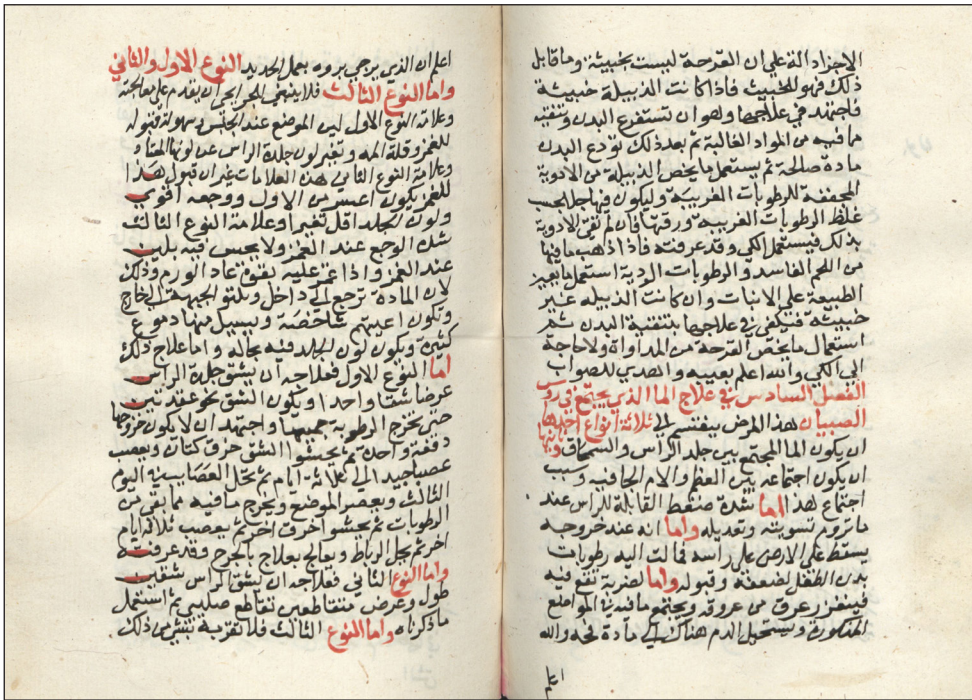 الاجزاء دالة على ان القرحة ليست بخبيثة وما قابل
ذلك فهو الخبيث فاذا كانت الذبيلة خبيثة
فاجتهد في علاجها وهو ان تستفرغ البدن وتنقيه
مما فيه من المواد الغالبة ثم بعد ذلك تودع البدن
مادة صالحة ثم يستعمل ما يخص الذبيلة من الادوية
المجففة للرطوبات الغريبة وليكون فيها جلا بحسب
غلظ الرطوبات الغريبة ورقتها فان لم تفى الادوية
بذلك فيستعمل الكي وقد عرفته فاذا ذهب ما فيها
من اللحم الفاسد والرطوبات الردية استعمل ما يعين
الطبيعة على الانبات وان كانت الذبيله غير
خبيثه فيكفى في علاجها بتنقية البدن ثم
استعمال ما يخص القرحة من المداواة ولا حاجة
الى الكي والله اعلم بغيبه والهدي للصواب
الفصل السادس في علاج الما الذي يجتمع في روس
الصبيان هذا المرض ينقسم الى ثلاثة انواع احدها
ان يكون الما المجتمع بين جلد الراس والسمحاق وثانيها
ان يكون اجتماعه بين العظم والام الجافيه وسبب
اجتماع هذا اما شدة ضغط القابلة للراس عند
ما تروم تسويته وتعديله واما انه عند خروجه
يسقط على الارض على راسه فمالت اليه رطوبات
بدن الطفل لضعفه وقبوله واما لضربة تقع فيه
فينفزر عرق من عروقه ويجتمع ما فيه في المواضع
المذكورة ويستحيل الدم هناك الى مادة نجه والله
اعلم
اعلم ان الذي يرجى بروه بعمل الحديد النوع الاول والثاني
واما النوع الثالث فلا ينبغي للجرايحي ان يقدم على معالجته
وعلامة النوع الاول لين الموضع عند الجس وسهولة قبوله
للغمز وقلة المه وتغير لون جلدة الراس عن لونها المعتاد
وعلامة النوع الثاني هذه العلامات غير ان قبول هذا
للغمز يكون اعسر من الاول ووجعه اقوى
ولون الجلد اقل تغيرا وعلامة النوع الثالث
شدة الوجع عند الغمز ولا يحس فيه بلين
عند الغمز واذا غمز عليه بقوة عاد الورم وذلك
لان المادة ترجع الى داخل ويلتو الجبهة الى خارج
وتكون اعينهم شاخصة ويسيل منها دموع
كثيرة ويكون لون الجلد فيه بحاله واما علاج ذلك
اما النوع الاول فعلاجه ان يشق جلدة الراس
عرضا شقا واحدا ويكون الشق نحو عقدتين
حتى يخرج الرطوبة جميعها واجتهد ان لا يكون خروجها
دفعة واحدة ثم يحشوا الشق خرق كتان ويعصب
عصبا جيدا الى ثلاثة ايام ثم تحل العصايب في اليوم
الثالث ويعصر الموضع ويخرج ما فيه مما بقى من
الرطوبات ثم يحشو اخرق اخر ثم يعصب ثلاثة ايام
اخر ثم يحل الرباط ويعالج بعلاج الجرح وقد عرفته
واما النوع الثاني فعلاجه ان يشق الراس بشقين
طول وعرض متقاطعين تقاطع صليبي ثم استعمل
ما ذكرناه واما النوع الثالث فلا تقربه بشي من ذلك